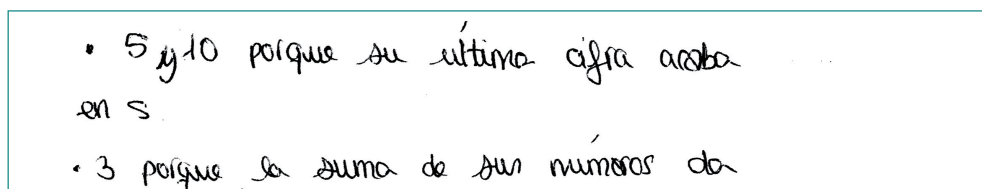 • 5 y 10 porque su última cifra acaba
en 5
• 3 porque la suma de sus números da